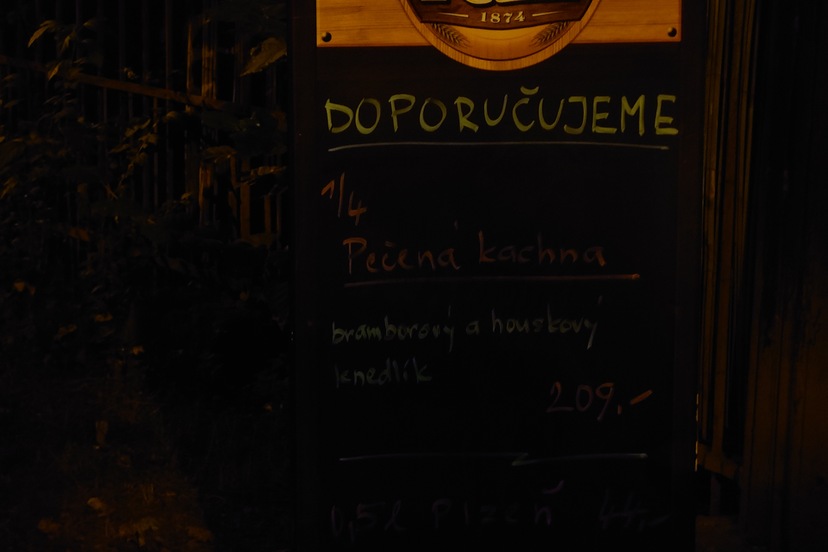 1874
DOPORUČUJEME
1/4
Pečená kachna
bramborový a houskový
knedlík
209.-
0,5l Plzeň 44,-